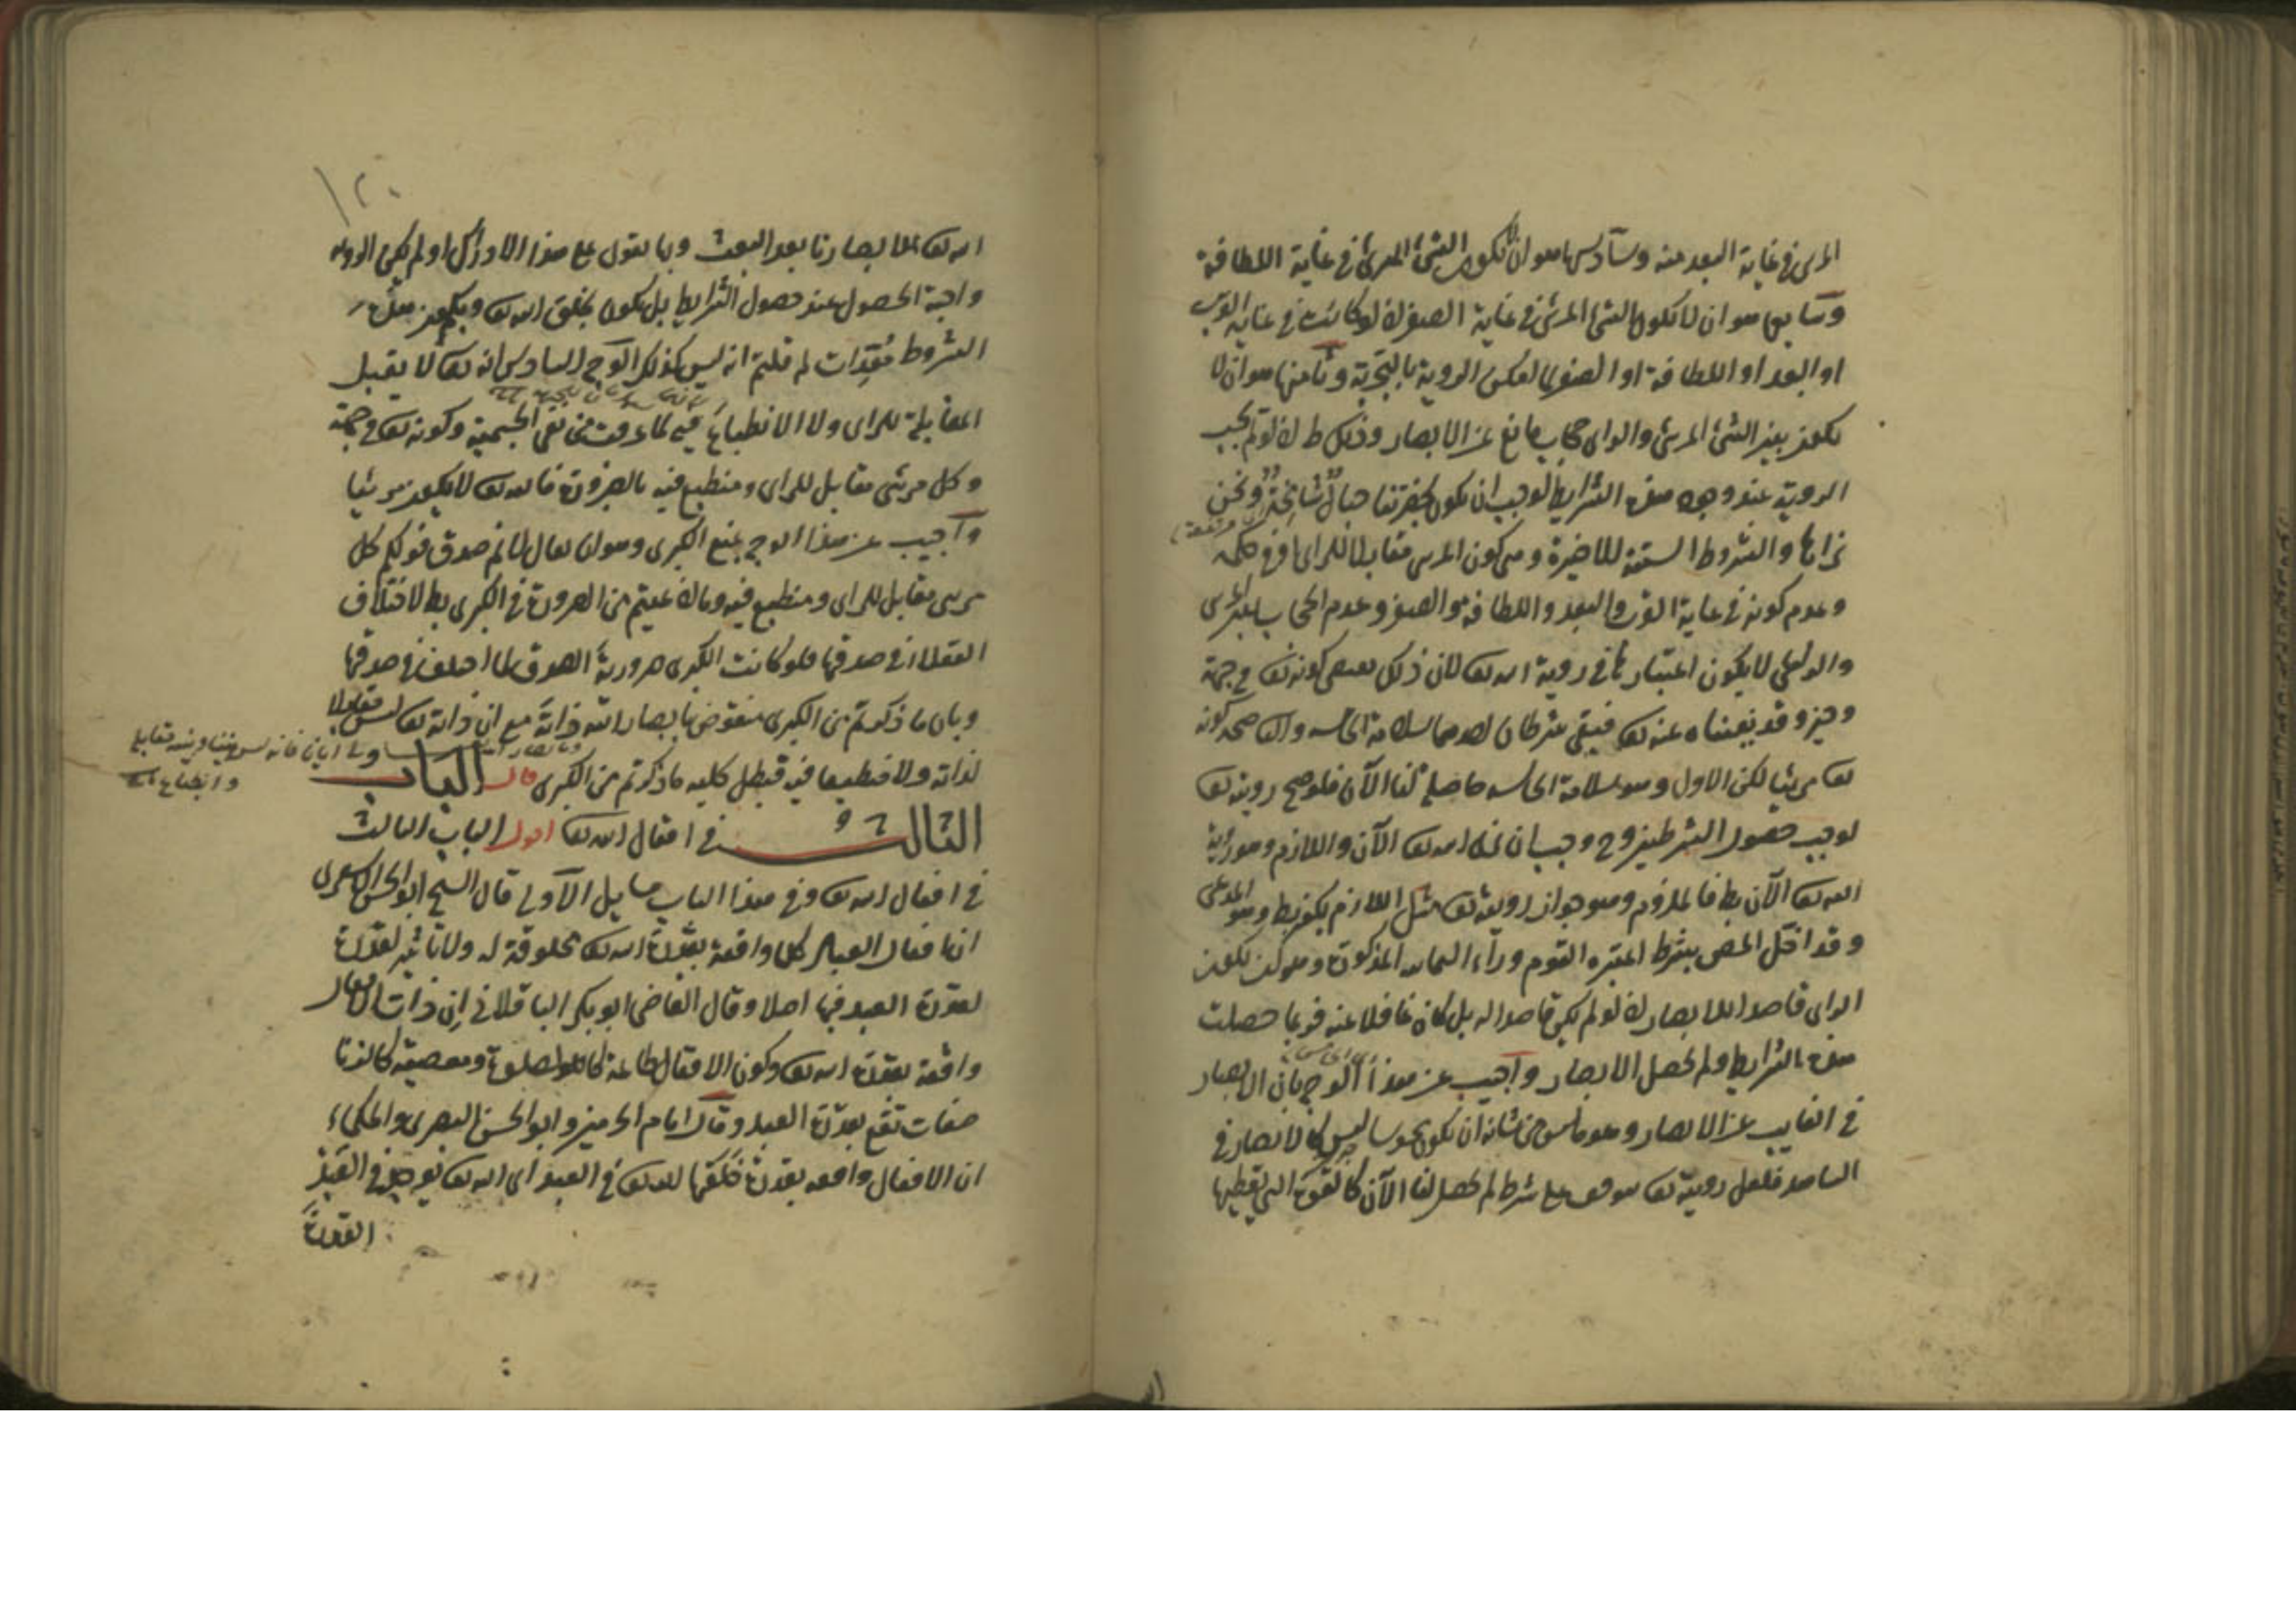 المرئى فى غاية البعد منه وسادسها هو ان لا يكون الشئ المرئى فى غاية اللطافة
وسابعها هو ان لا يكون الشئ المرئى فى غاية الصغر لانه لو كانت فى غاية القرب
او البعد او اللطافة او الصغر لم يمكن الروية بالتجربة وثامنها هو ان لا
يكون بين الشئ المرئى والرائى حجاب مانع عن الابصار وذلك ط لانه لو لم يجب
الروية عند وجود هذه الشرايط لوجب ان يكون بحضرتنا جبال شامخة ونحن
نراها والشروط الستة الاخيرة وهى كون المرئى مقابلا للرائى او فى حكمه
وعدم كونه فى غاية القرب والبعد واللطافة والصغر وعدم الحجاب بين المرئى
والرائى لا يكون اعتبارها فى روية الله تع لان ذلك يقتضى كونه تع فى جهة
وحيز وقد نفيناه عنه تع فبقى شرطان احدهما سلامة الحاسة والثانى صحة كونه
تع مرئيا لكن الاول وهو سلامة الحاسة حاصلة لنا الآن فلو صح رويته تع
لوجب حصول الشرطين وح وجب ان نرى الله تع الآن واللازم وهو رؤية
الله تع الآن بط فالملزوم وهو جواز رويته تع مثل اللازم يكون بط وهو المدعى
وقد اخل المص بشرط اعتبره القوم وراء الثمانية المذكورة وهو كون يكون
الرائى قاصدا للابصار لانه لو لم يكن قاصدا له بل كان غافلا عنه فربما حصلت
هذه الشرايط ولم يحصل الابصار واجيب عن هذا الوجه بان الابصار
فى الغايب عن الابصار وهو ما ليس من شانه ان يكون محسوسا ليس كالابصار فى
الشاهد فلعل روية تع موقوف على شرط لم يحصل لنا الآن كالقوة التى يعطيها
١٢٠
الله تع لابصارنا بعد البعث وبما نقول على هذا الادراك او لم يكن الروية
واجبة الحصول عند حصول الشرايط بل يكون بخلق الله تع ويكون هذه
الشروط معدات لم قلتم انه ليس كذلك الوجه السادس انه تع لا يقبل
المقابلة للراى ولا الانطباع فيه لما عرفت من نفى الجسمية وكونه تع فى جهة
وكل مرئى مقابل للراى ومنطبع فيه بالضرورة فالله تع لا يكون مرئيا
واجيب عن هذا الوجه بمنع الكبرى وهو ان يقال لا نم صدق قولكم كل
مرئى مقابل للراى ومنطبع فيه وما ادعيتم من الضرورة فى الكبرى بط لاختلاف
العقلاء فى صدقها فلو كانت الكبرى ضرورية الصدق لما اختلف فى صدقها
وبان ما ذكرتم من الكبرى منقوض بابصار الله ذاته مع ان ذاته تع ليس مقابلا
لذاته ولا منطبعا فيه فبطل كلية ما ذكرتم من الكبرى قال الباب
الثالث فى افعال الله تع اقول الباب الثالث
فى افعال الله تع وفى هذا الباب مسايل الاولى قال الشيخ ابو الحسن الاشعرى
ان افعال العباد كلها واقعة بقدرة الله تع مخلوقة له ولا تاثير لقدرة
لقدرة العبد فيها اصلا وقال القاضى ابو بكر الباقلانى ان ذات الافعال
واقعة بقدرة الله تع وكون الافعال طاعة كالصلوة ومعصية كالزنا
صفات تقع بقدرة العبد وقال امام الحرمين وابو الحسن البصرى والحكماء
ان الافعال واقعة بقدرة خلقها الله تع فى العبد اى الله تع يوجد فى العبد
القدرة